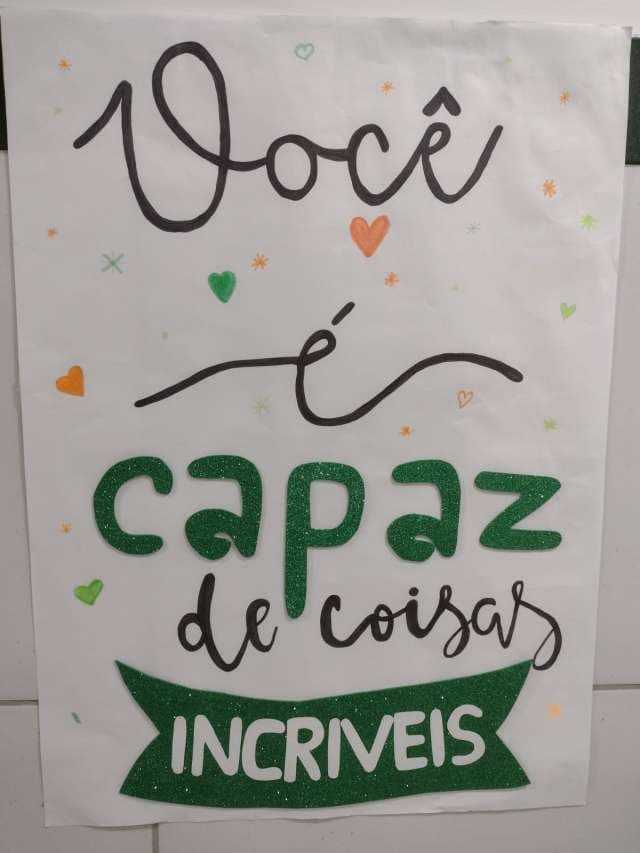 Você
é
capaz
de coisas
INCRIVEIS